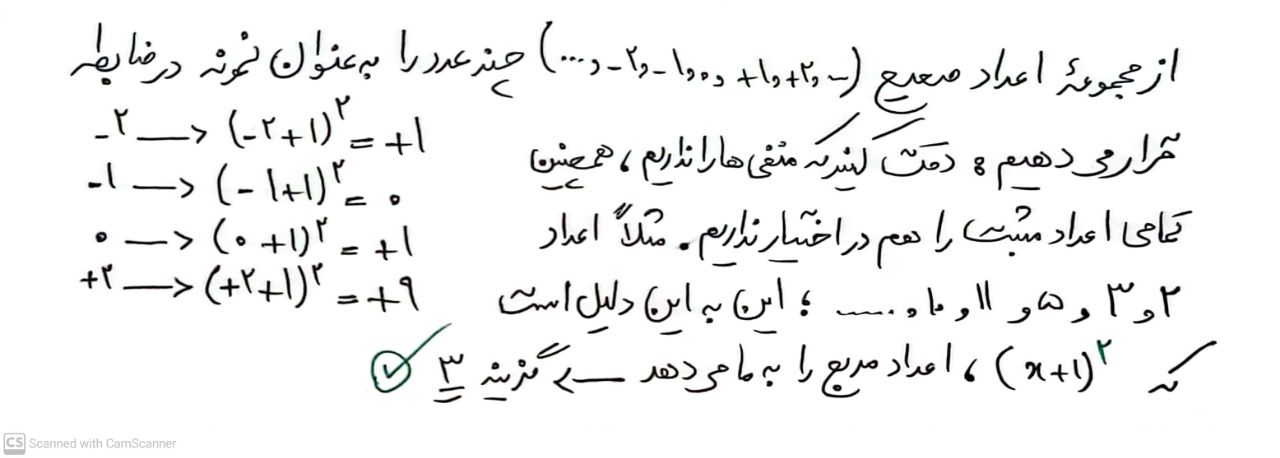 از مجموعهٔ اعداد صحیح (... و +۲ و +۱ و ۰ و -۱ و -۲ و ...) چند عدد را به عنوان نمونه در ضابطه
قرار می دهیم ؛ دقت کنید که منفی ها را نداریم ، همچنین
تمامی اعداد مثبت را هم در اختیار نداریم . مثلاً اعداد
۲ و ۳ و ۵ و ۱۱ و ۱۰ و ...... ؛ این به این دلیل است
که (x+1)^۲ ، اعداد مربع را به ما می دهد —> گزینه ۳
-۲ —> (-۲+۱)^۲ = +۱
-۱ —> (-۱+۱)^۲ = ۰
۰ —> (۰+۱)^۲ = +۱
+۲ —> (+۲+۱)^۲ = +۹
CS Scanned with CamScanner